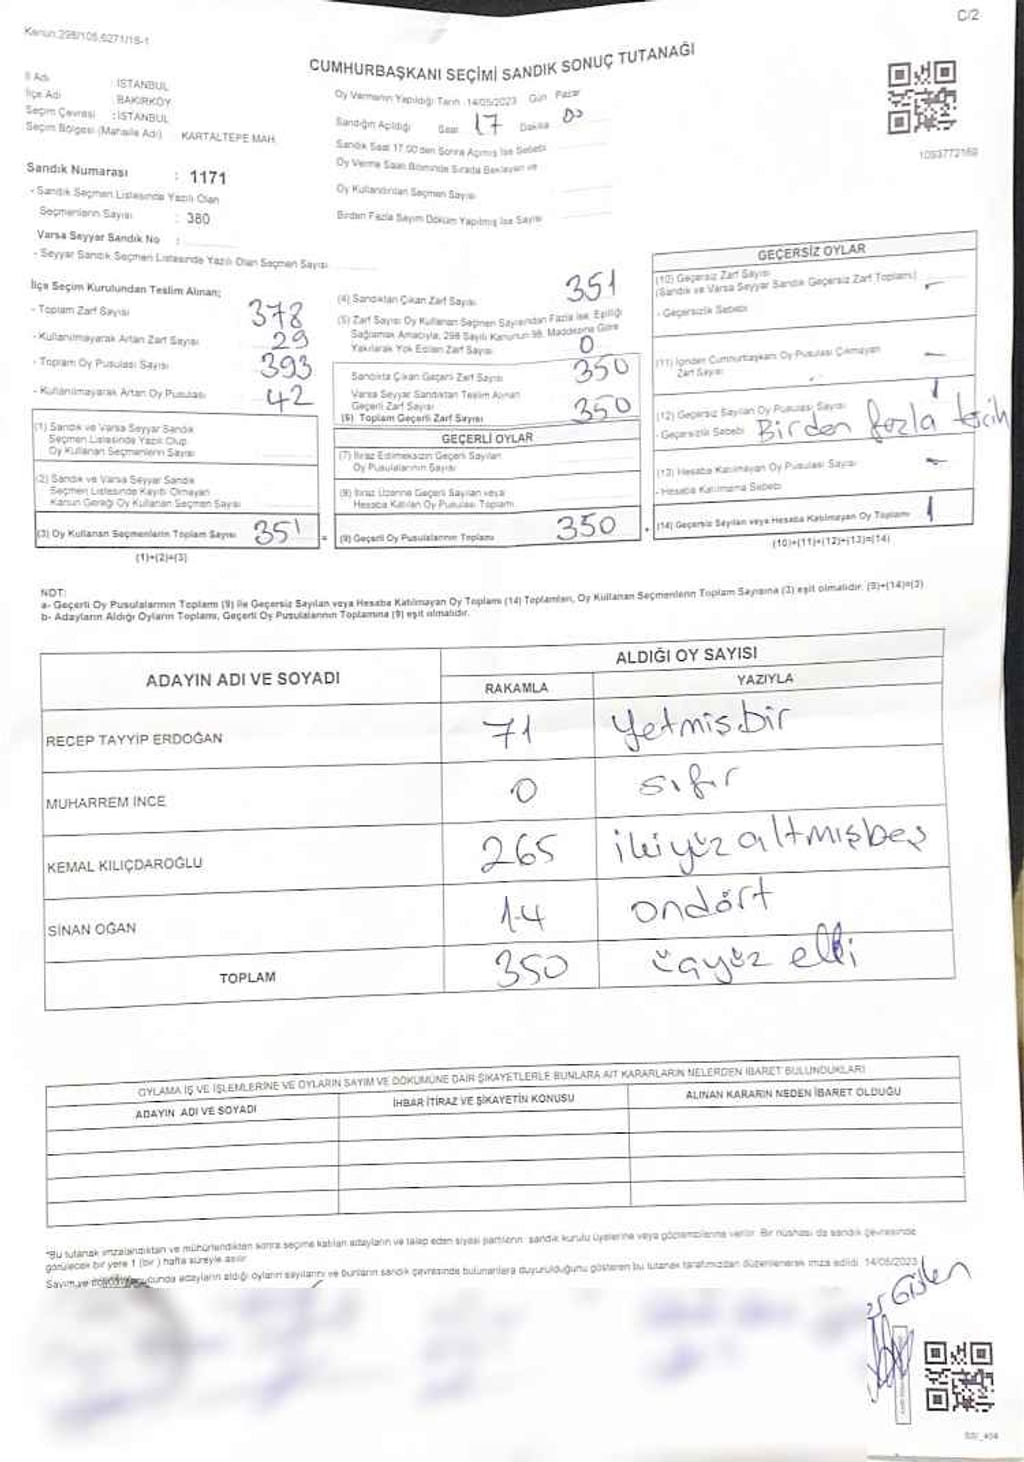 C/2
Kanun:298/105,6271/18-1
CUMHURBAŞKANI SEÇİMİ SANDIK SONUÇ TUTANAĞI
İl Adı : İSTANBUL
İlçe Adı : BAKIRKÖY
Seçim Çevresi : İSTANBUL
Seçim Bölgesi (Mahalle Adı) KARTALTEPE MAH.
Oy Vermenin Yapıldığı Tarih : 14/05/2023 Gün Pazar
Sandığın Açıldığı Saat 17 Dakika 00
Sandık Saat 17.00'den Sonra Açılmış İse Sebebi
Oy Verme Saati Bitiminde Sırada Bekleyen ve
Oy Kullandırılan Seçmen Sayısı
Birden Fazla Sayım Döküm Yapılmış İse Sayısı
1093772169
Sandık Numarası : 1171
- Sandık Seçmen Listesinde Yazılı Olan
Seçmenlerin Sayısı : 380
Varsa Seyyar Sandık No :
- Seyyar Sandık Seçmen Listesinde Yazılı Olan Seçmen Sayısı
İlçe Seçim Kurulundan Teslim Alınan;
- Toplam Zarf Sayısı 378
- Kullanılmayarak Artan Zarf Sayısı 29
- Toplam Oy Pusulası Sayısı 393
- Kullanılmayarak Artan Oy Pusulası 42
(1) Sandık ve Varsa Seyyar Sandık
Seçmen Listesinde Yazılı Olup
Oy Kullanan Seçmenlerin Sayısı
(2) Sandık ve Varsa Seyyar Sandık
Seçmen Listesinde Kayıtlı Olmayan
Kanun Gereği Oy Kullanan Seçmen Sayısı
(3) Oy Kullanan Seçmenlerin Toplam Sayısı 351
(1)+(2)=(3)
(4) Sandıktan Çıkan Zarf Sayısı 351
(5) Zarf Sayısı Oy Kullanan Seçmen Sayısından Fazla İse, Eşitliği
Sağlamak Amacıyla, 298 Sayılı Kanunun 98. Maddesine Göre
Yakılarak Yok Edilen Zarf Sayısı 0
Sandıkta Çıkan Geçerli Zarf Sayısı 350
Varsa Seyyar Sandıktan Teslim Alınan
Geçerli Zarf Sayısı
(6) Toplam Geçerli Zarf Sayısı 350
GEÇERLİ OYLAR
(7) İtiraz Edilmeksizin Geçerli Sayılan
Oy Pusulalarının Sayısı
(8) İtiraz Üzerine Geçerli Sayılan veya
Hesaba Katılan Oy Pusulası Toplamı
= (9) Geçerli Oy Pusulalarının Toplamı 350
GEÇERSİZ OYLAR
(10) Geçersiz Zarf Sayısı
(Sandık ve Varsa Seyyar Sandık Geçersiz Zarf Toplamı) -
- Geçersizlik Sebebi
(11) İçinden Cumhurbaşkanı Oy Pusulası Çıkmayan
Zarf Sayısı -
(12) Geçersiz Sayılan Oy Pusulası Sayısı 1
- Geçersizlik Sebebi Birden fazla tercih
(13) Hesaba Katılmayan Oy Pusulası Sayısı -
- Hesaba Katılmama Sebebi
+ (14) Geçersiz Sayılan veya Hesaba Katılmayan Oy Toplamı 1
(10)+(11)+(12)+(13)=(14)
NOT:
a- Geçerli Oy Pusulalarının Toplamı (9) ile Geçersiz Sayılan veya Hesaba Katılmayan Oy Toplamı (14) Toplamları, Oy Kullanan Seçmenlerin Toplam Sayısına (3) eşit olmalıdır. (9)+(14)=(3)
b- Adayların Aldığı Oyların Toplamı, Geçerli Oy Pusulalarının Toplamına (9) eşit olmalıdır.
ADAYIN ADI VE SOYADI
ALDIĞI OY SAYISI
RAKAMLA YAZIYLA
RECEP TAYYİP ERDOĞAN 71 yetmişbir
MUHARREM İNCE 0 sıfır
KEMAL KILIÇDAROĞLU 265 ikiyüz altmışbeş
SİNAN OĞAN 14 ondört
TOPLAM 350 üçyüz elli
OYLAMA İŞ VE İŞLEMLERİNE VE OYLARIN SAYIM VE DÖKÜMÜNE DAİR ŞİKAYETLERLE BUNLARA AİT KARARLARIN NELERDEN İBARET BULUNDUKLARI
ADAYIN ADI VE SOYADI İHBAR İTİRAZ VE ŞİKAYETİN KONUSU ALINAN KARARIN NEDEN İBARET OLDUĞU
*Bu tutanak imzalandıktan ve mühürlendikten sonra seçime katılan adayların ve talep eden siyasi partilerin sandık kurulu üyelerine veya gözlemcilerine verilir. Bir nüshası da sandık çevresinde
görülecek bir yere 1 (bir) hafta süreyle asılır.
Sayım ve adayların aldığı oyların sayılarını ve bunların sandık çevresinde bulunanlara duyurulduğunu gösteren bu tutanak tarafımızdan düzenlenerek imza edildi. 14/05/2023